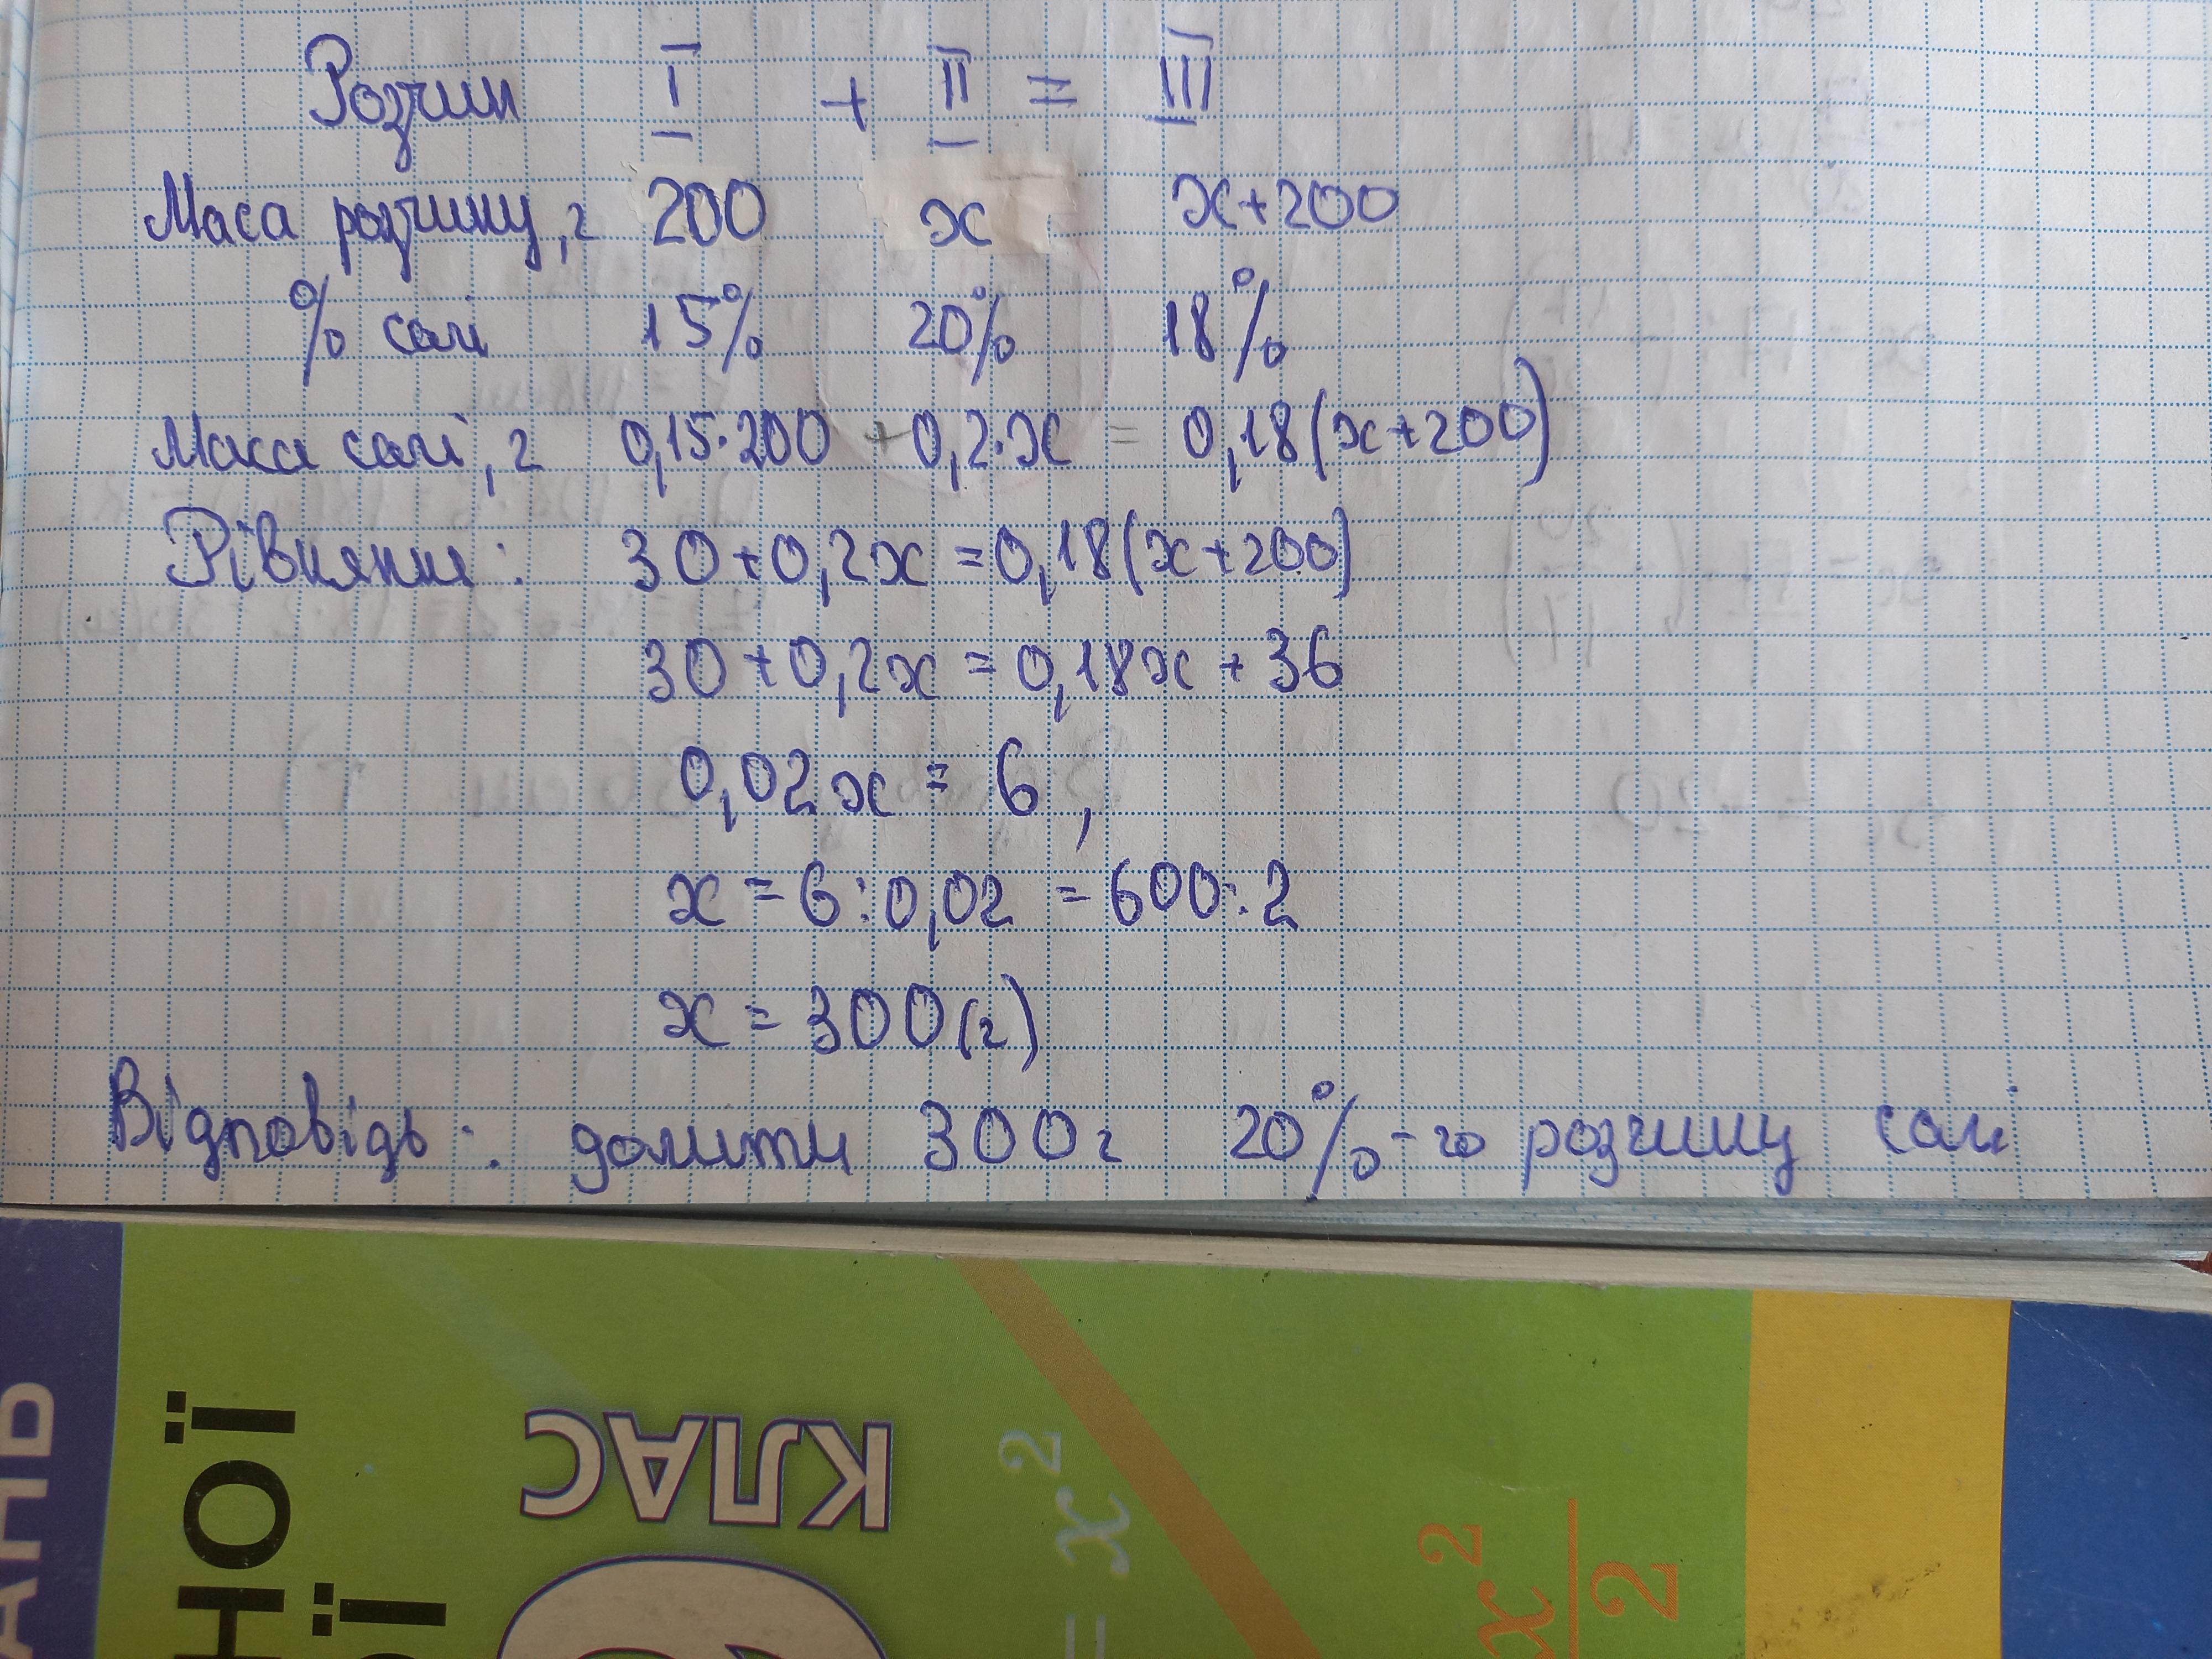 Розчин I + II = III
Маса розчину, г 200 x x+200
% солі 15% 20% 18%
Маса солі, г 0,15·200 + 0,2·x = 0,18(x+200)
Рівняння: 30+0,2x=0,18(x+200)
30+0,2x=0,18x+36
0,02x = 6,
x = 6:0,02 = 600:2
x = 300(г)
Відповідь: долити 300г 20%-го розчину солі
АНЬ
НОЇ
ЇЇ
КЛАС
= x²
x²
2